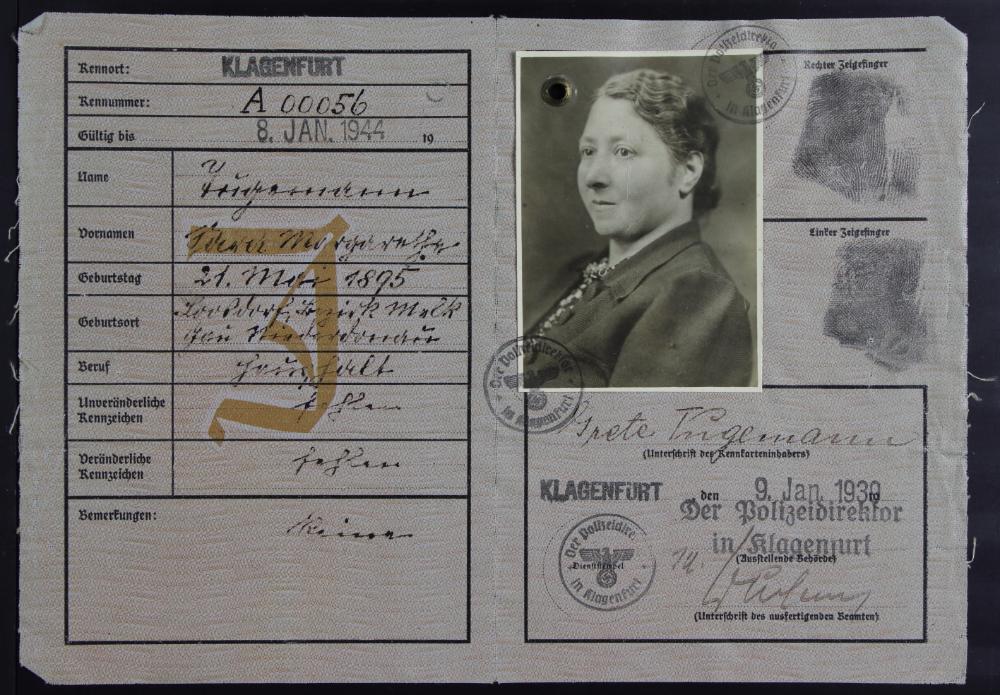 Kennort: KLAGENFURT
Kennummer: A 00056
Gültig bis 8. JAN. 1944 19
Name
Vornamen Margarethe
Geburtstag 21. Mai 1895
Geburtsort Loosdorf, Bezirk Melk
Gau Niederdonau
Beruf Haushalt
Unveränderliche
Kennzeichen fehlen
Veränderliche
Kennzeichen fehlen
Bemerkungen: Keine
J
Der Polizeidirektor
in Klagenfurt
Rechter Zeigefinger
Linker Zeigefinger
Der Polizeidirektor
in Klagenfurt
Grete
(Unterschrift des Kennkarteninhabers)
KLAGENFURT den 9. Jan. 1939 19
Der Polizeidirektor
in Klagenfurt
(Ausstellende Behörde)
Der Polizeidire
Dienststempel
in Klagenfurt
(Unterschrift des ausfertigenden Beamten)